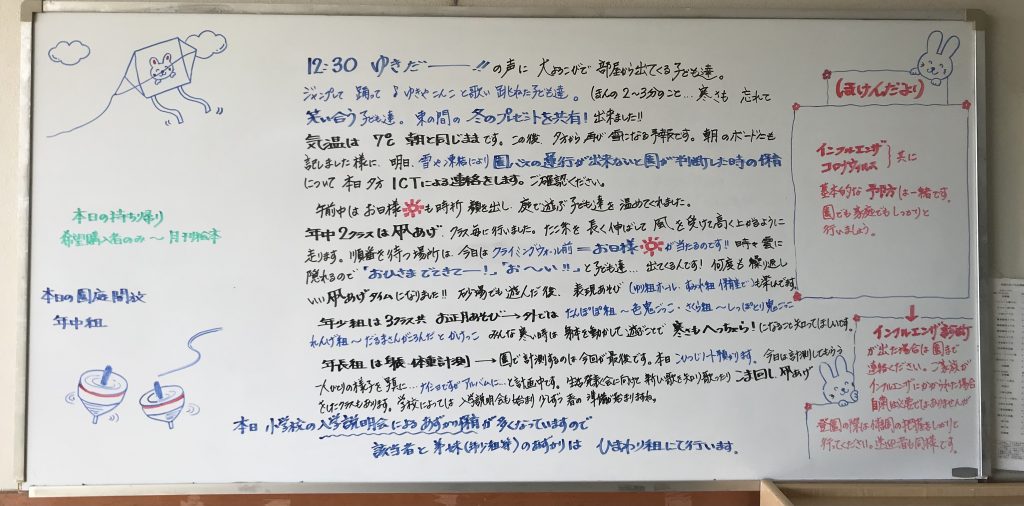 12:30 ゆきだー!! の声に 大よろこびで 部屋から出てくる子ども達。
ジャンプして 踊って ♪ゆきやこんこと歌い 跳ねた子ども達。(ほんの2〜3分のこと… 寒さも 忘れて
笑い合う子ども達。束の間の 冬のプレゼントを共有! 出来ました!!
気温は 7℃ 朝と同じままです。この後、夕方から再び雪になる予報です。朝のボードにも
記しました様に、明日、雪や凍結により園バスの運行が出来ないと園が判断した時の保育
について 本日夕方 ICTによる連絡をします。ご確認ください。
午前中は お日様も時折 顔を出し、庭で遊ぶ子ども達を温めてくれました。
年中2クラスは凧あげ クラス毎に行いました。たこ糸を 長く伸ばして 風を受けて高く上がるように
走ります。順番を待つ場所は、今日はクライミングウォール前=お日様が当たるのです!! 時々雲に
隠れるので "おひさまでてきてー!" "おーい!!" と子ども達… 出てくるんです! 何度も繰り返し
いい凧あげタイムになりました!! 砂場でも遊んだ後、表現あそび(ゆり組ホール・すみれ組保育室で)も楽しんでます
年少組は3クラス共 お正月あそび→外では たんぽぽ組〜色鬼ごっこ・さくら組〜しっぽとり鬼ごっこ
れんげ組〜だるまさんがころんだ とかけっこ みんな寒い時は 体を動かして遊ぶことで 寒さもへっちゃら!になること知ってほしいです。
年長組は 身長・体重計測 → 園で計測するのは今回が最後です。本日 こひつじノート預かります。今日は計測してもらう
一人ひとりの様子を 写真に… ナイショですが アルバムに…と計画中です。生活発表会に向けて 新しい歌を知り歌ったり こま回し、凧あげ
をしたクラスもあります。学校によっては 入学説明会も始まり 少しずつ 春の準備始まりますね。
本日 小学校の入学説明会による あずかり保育が多くなっていますので
該当者と 弟妹(年少組等)のあずかりは ひまわり組にて行います。
本日の持ち帰り
希望購入者のみ〜月刊絵本
本日の園庭開放
年中組
ほけんだより
インフルエンザ
コロナウィルス 共に
基本的な予防方は一緒です。
園でも家庭でもしっかりと
行いましょう。
インフルエンザ診断
が出た場合は園まで
連絡ください。ご家族が
インフルエンザにかかられた場合
自粛は必要ではありませんが
登園の際は体調の把握をしっかりと
行ってください。送迎者も同様です。